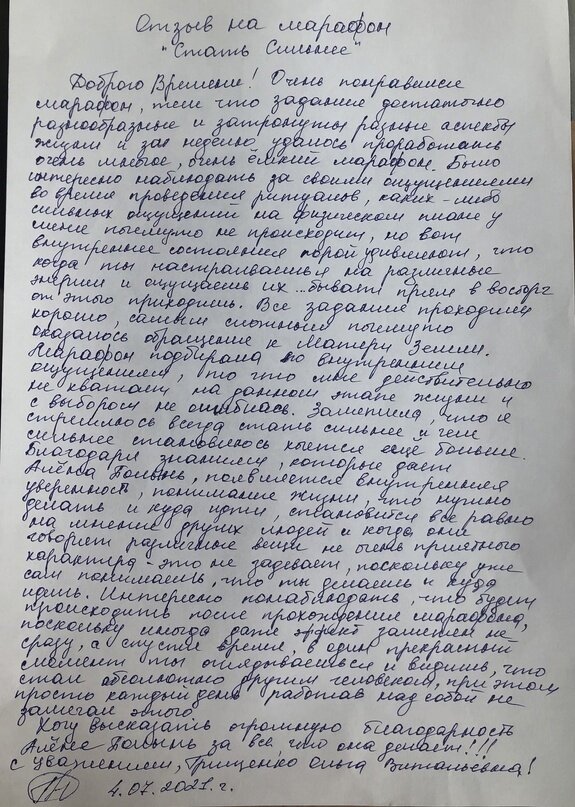 Отзыв на марафон
"Стать Сильнее"
Доброго Времени! Очень понравился
марафон, тем что задание достаточно
разнообразные и затронуты разные аспекты
жизни и за неделю удалось проработать
очень многое, очень ёмкий марафон. Было
интересно наблюдать за своими ощущениями
во время проведения ритуалов, каких-либо
сильных ощущений на физическом плане у
меня почемуто не происходит, но вот
внутреннее состояния порой удивляют, что
когда ты настраиваешься на различные
энергии и ощущаешь их... бывает прям в восторг
от этого приходишь. Все задание проходили
хорошо, самым сложным почемуто
оказалось обращение к Матери Земли.
Марафон подбирала по внутренним
ощущениям, то что мне действительно
не хватало на данном этапе жизни и
с выбором не ошиблась. Заметила, что я
стремлюсь всегда стать сильнее и чем
сильнее становлюсь хочется ещё больше.
Благодаря знаниям, которые даёт
Алёна Полынь, появляется внутренняя
уверенность, понимание жизни, что нужно
делать и куда идти, становится все равно
на мнение других людей и когда они
говорят различные вещи не очень приятного
характера - это не задевает, поскольку уже
сам понимаешь, что ты делаешь и куда
идешь. Интересно понаблюдать, что будет
происходить после прохождения марафона,
поскольку иногда даже эффект заметен не
сразу, а спустя время, в один прекрасный
момент ты оглядываешься и видишь, что
стал абсолютно другим человеком, при этом
просто каждый день работав над собой не
замечал этого.
Хочу высказать огромную благодарность
Алёне Полынь за все что она делает!!!
с уважением, Грищенко Ольга Витальевна!
4.07.2021 г.